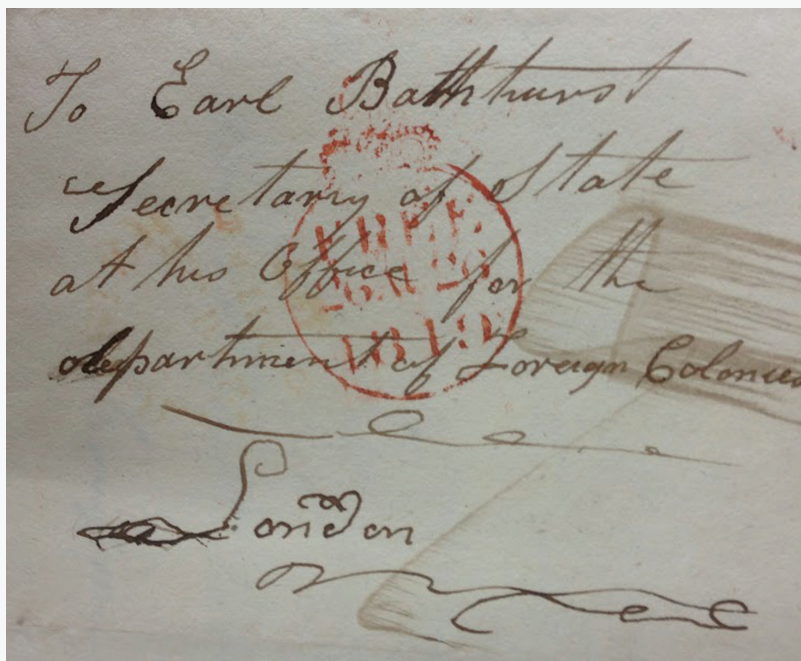 To Earl Bathhurst
Secretary of State
at his Office for the
department of Foreign Colonies
London
FREE
1819